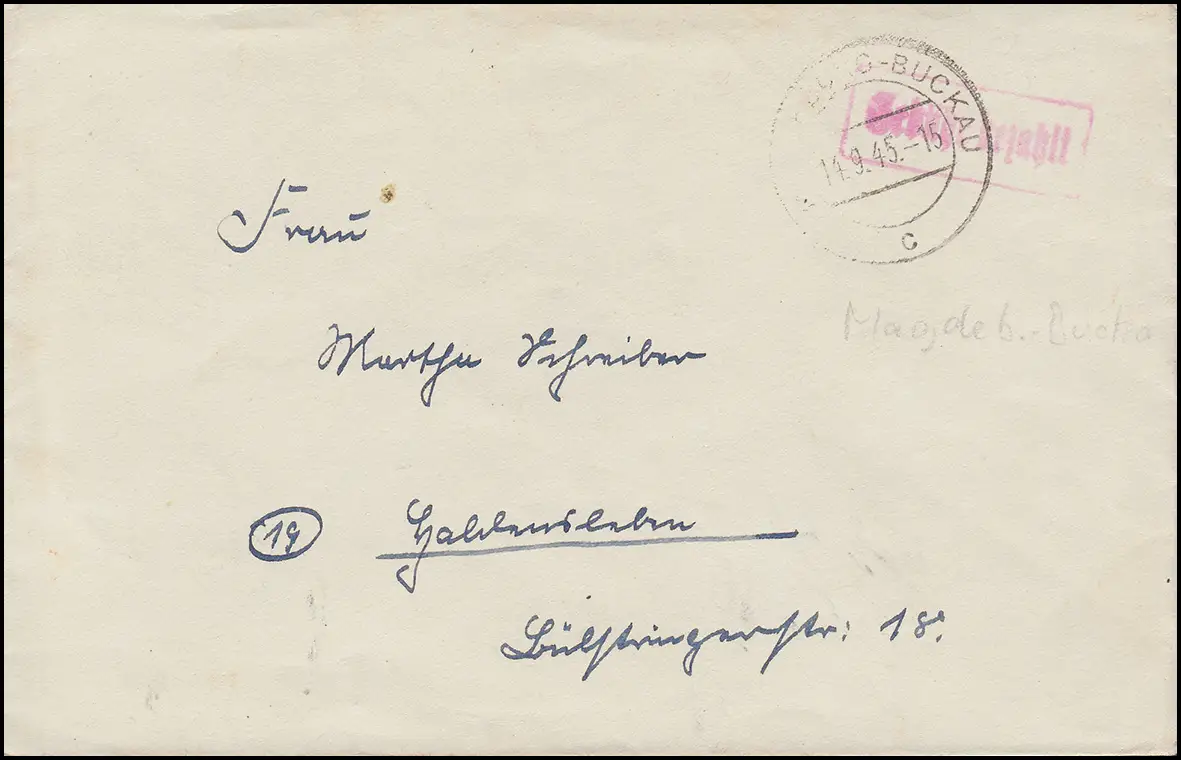 BURG-BUCKAU
14.9.45.-15
c
Magdeb.-Bucka
Frau
Martha Schreiber
19 Haldensleben
Bülstringerstr: 18.